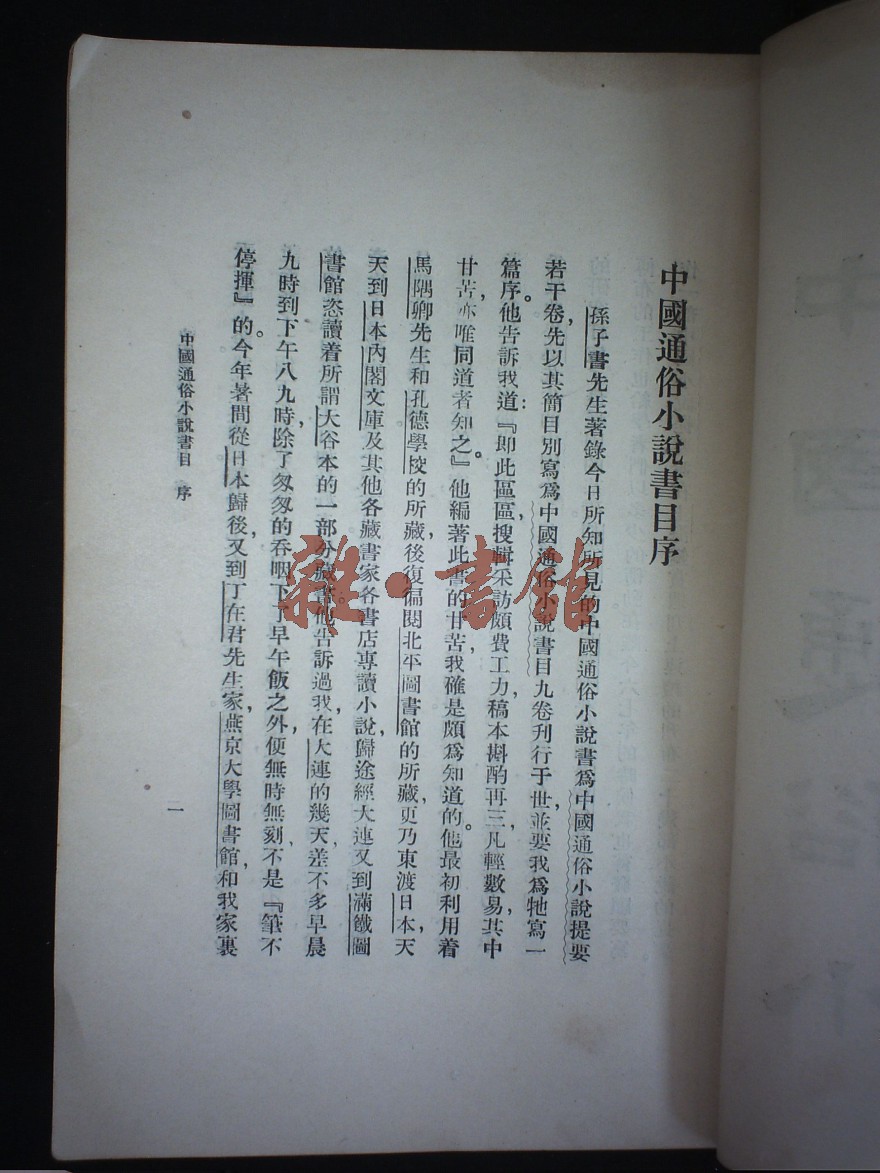 中國通俗小說書目序
孫子書先生著錄今日所知所見的中國通俗小說書爲中國通俗小說提要
若干卷,先以其簡目別寫爲中國通俗小說書目九卷刊行于世,並要我爲牠寫一
篇序。他告訴我道:『即此區區搜輯采訪,頗費工力,稿本斟酌再三,凡輕數易,其中
甘苦,亦唯同道者知之。』他編著此書的甘苦,我確是頗爲知道的。他最初利用着
馬隅卿先生和孔德學校的所藏,後復徧閱北平圖書館的所藏,更乃東渡日本,天
天到日本內閣文庫及其他各藏書家各書店專讀小說,歸途經大連,又到滿鐵圖
書館恣讀着所謂大谷本的一部分藏書。他告訴過我,在大連的幾天,差不多早晨
九時到下午八九時,除了匆匆的吞咽下了早午飯之外,便無時無刻,不是『筆不
停揮』的。今年暑間從日本歸後,又到丁在君先生家,燕京大學圖書館,和我家裏
中國通俗小說書目 序
一
雜·書館